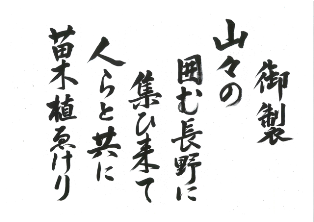 御製
山々の
囲む長野に
集ひ来て
人らと共に
苗木植ゑけり